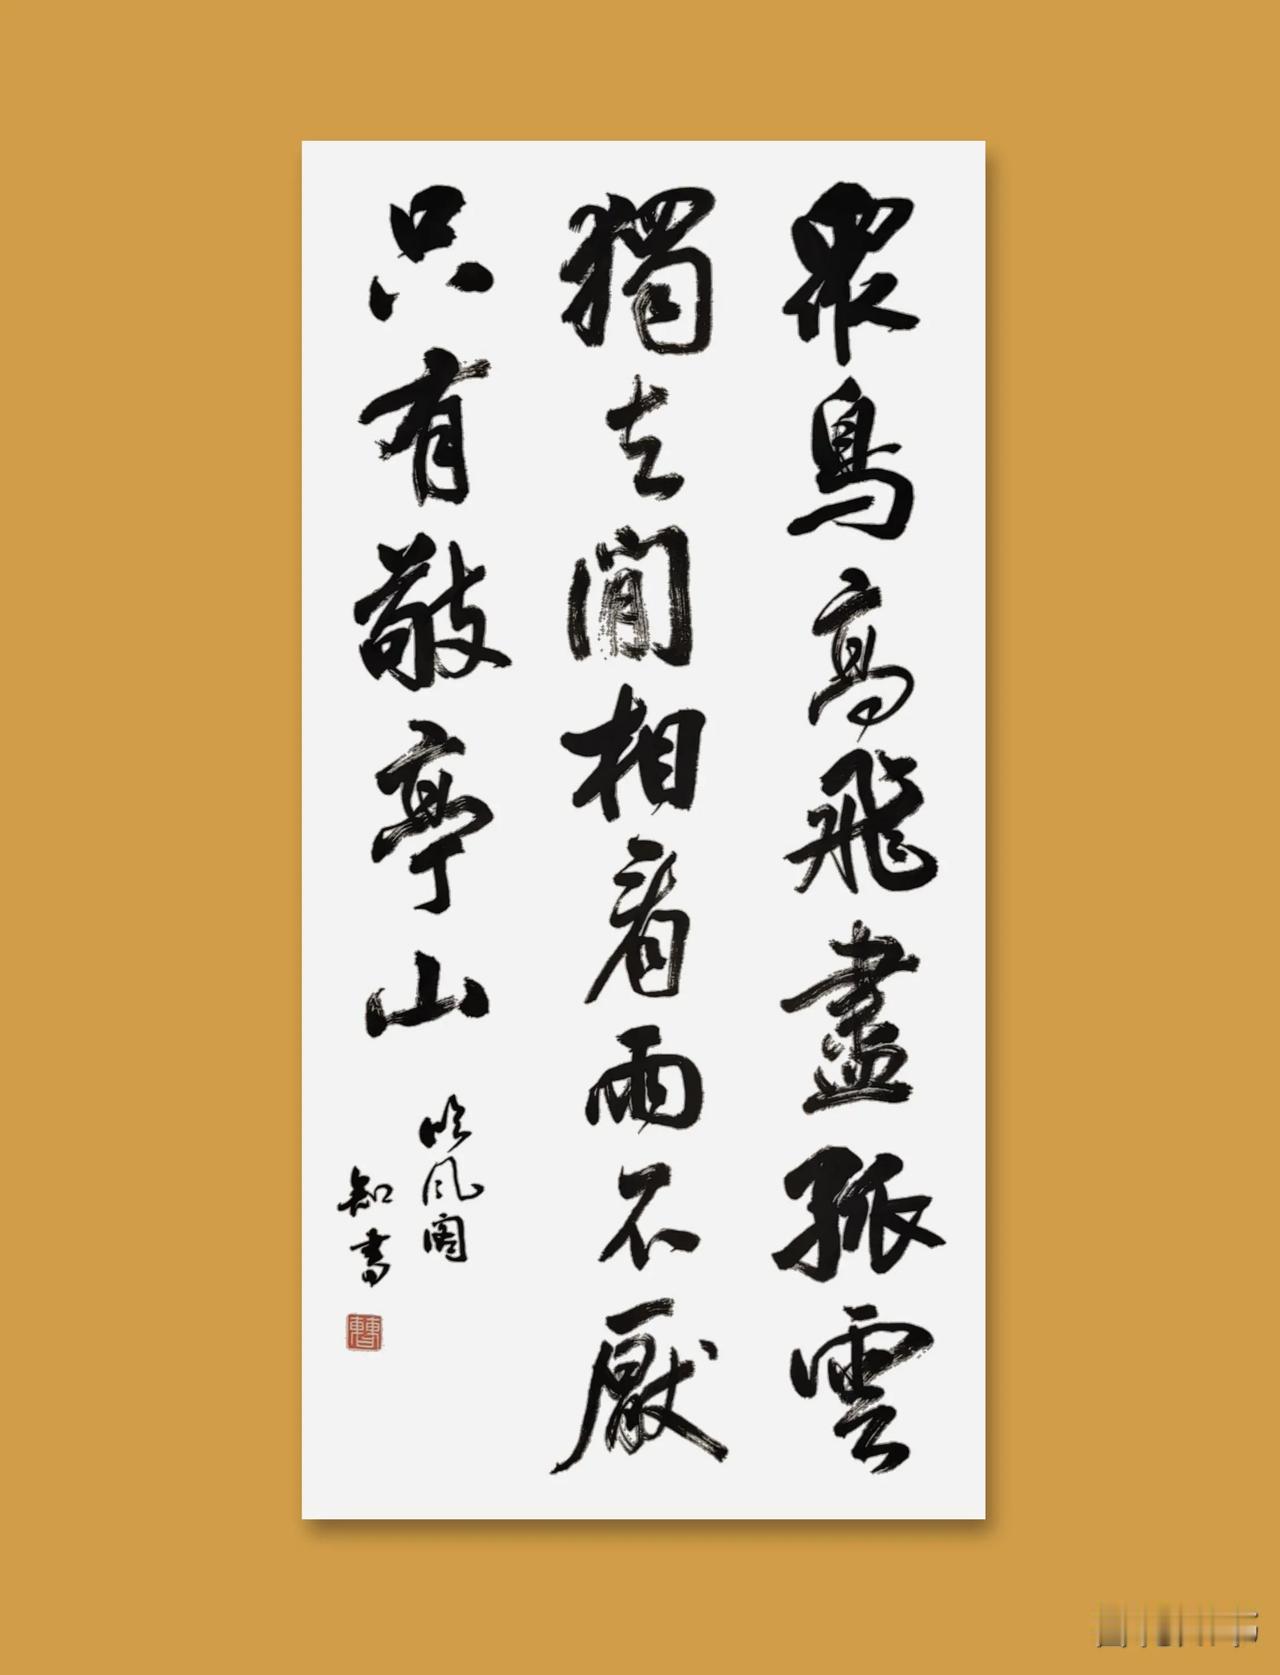 眾鳥高飛盡孤雲
獨去閒相看兩不厭
只有敬亭山
吟風閣
知書